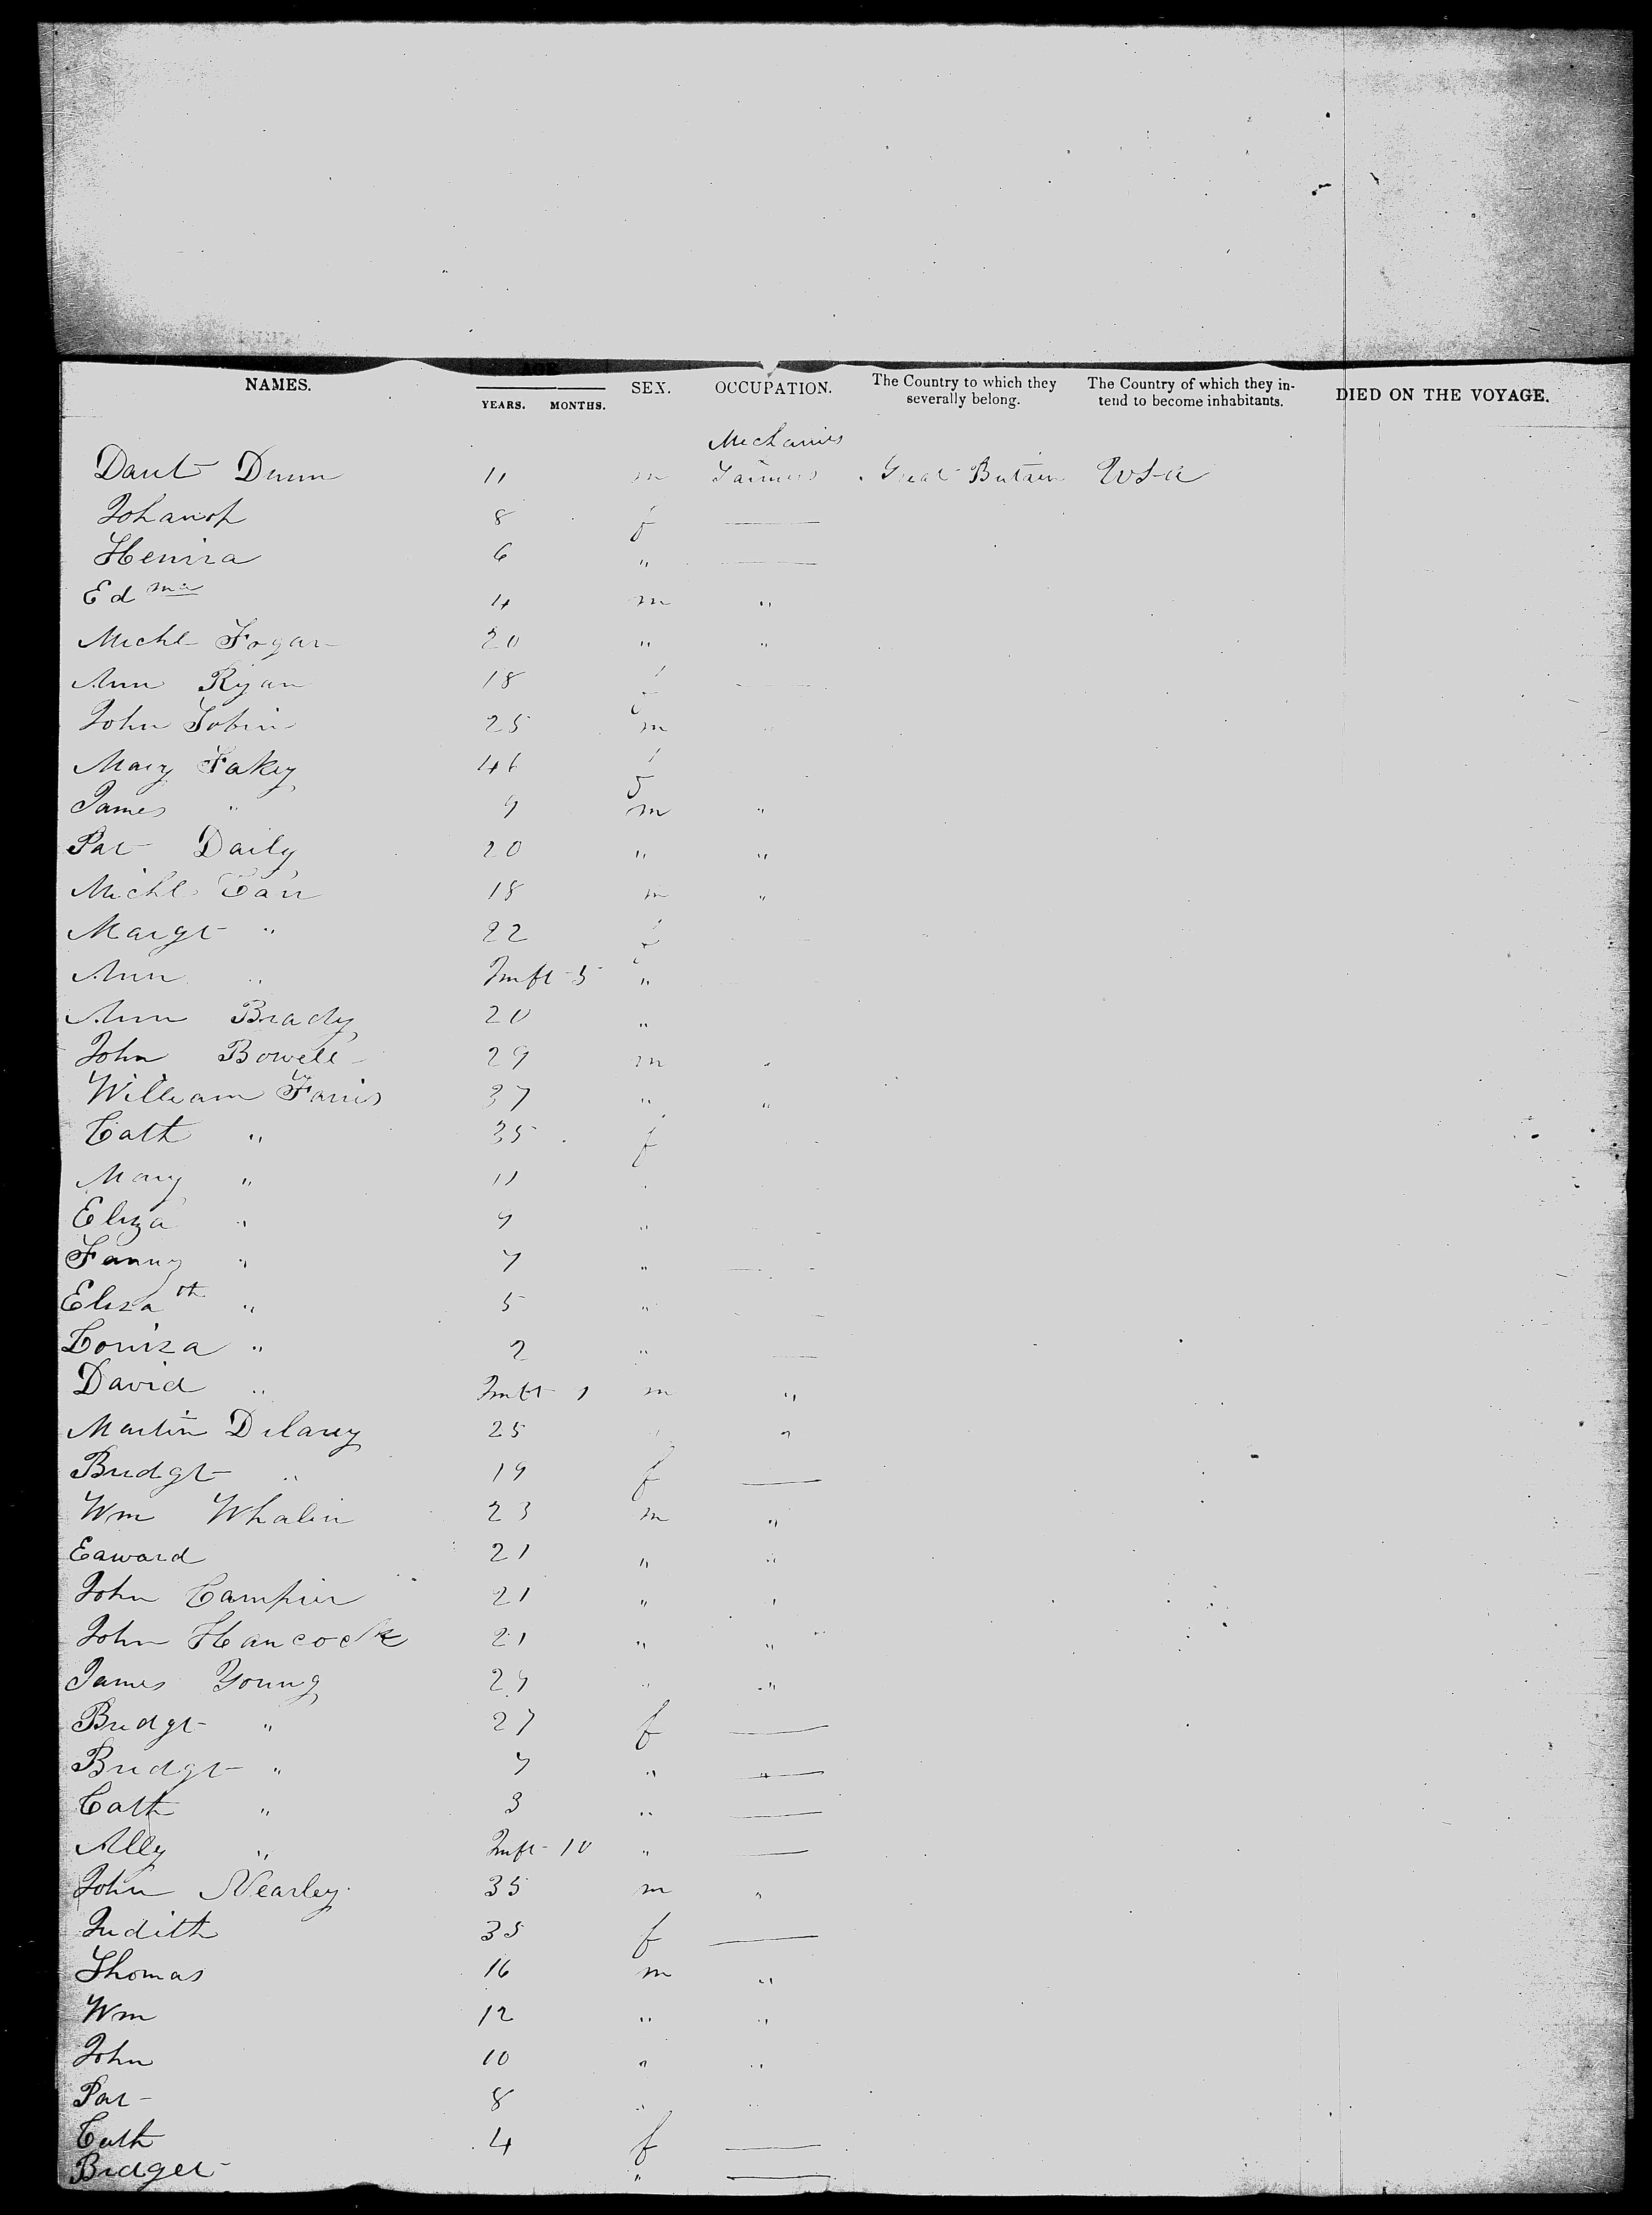 NAMES. AGE YEARS. MONTHS. SEX. OCCUPATION. The Country to which they severally belong. The Country of which they in-tend to become inhabitants. DIED ON THE VOYAGE.
Mechanics
Danl Dunn 11 m Farmers Great Britain USA
Johanah 8 f —
6 " —
Edmd 4 m "
Michl Fogar 20 " "
Ann Ryan 18 f —
John Tobin 25 m "
Mary Fakey 46 f
James " 9 m "
Pat Daily 20 " "
Michl Carr 18 m "
Margt " 22 f
Ann " Inft 5 "
Ann Brady 20 "
John Bowell 29 m "
William Farris 37 " "
Cath " 35 f
Mary " 11 "
Eliza " 9 "
Fanny " 7 " —
Elizath " 5 " —
Louiza " 2 " —
David " Inft 1 m "
Martin Delany 25 "
Bridgt " 19 f —
Wm Whalin 23 m "
Edward 21 " "
John Campier 21 " "
John Hancock 21 " "
James Young 29 " "
Bridgt " 27 f —
Bridgt " 7 " —
Cath " 3 " —
Ally " Inft 10 " —
John Nearley 35 m "
Judith 35 f —
Thomas 16 m "
Wm 12 " "
John 10 " "
Pat 8 " "
Cath 4 f —
Bridget " —